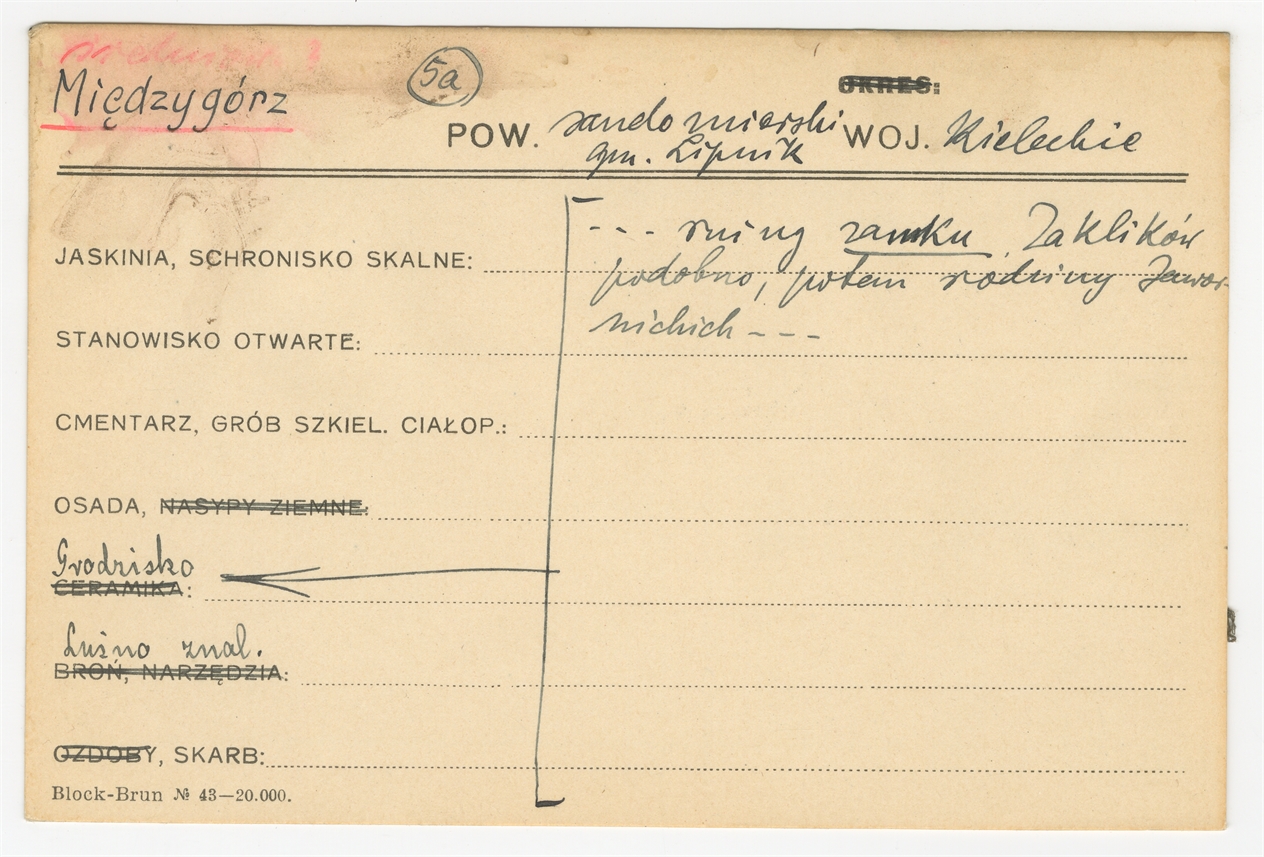 Międzygórz
5a
OKRES:
POW. sandomierski WOJ. Kieleckie
gm. Lipnik
--- ruiny zamku Zaklików
JASKINIA, SCHRONISKO SKALNE:
podobno, potem rodziny Jawor-
nickich ---
STANOWISKO OTWARTE:
CMENTARZ, GRÓB SZKIEL. CIAŁOP.:
OSADA, NASYPY ZIEMNE:
Grodzisko
CERAMIKA:
Luźno znal.
BROŃ, NARZĘDZIA:
OZDOBY, SKARB:
Block-Brun № 43—20.000.